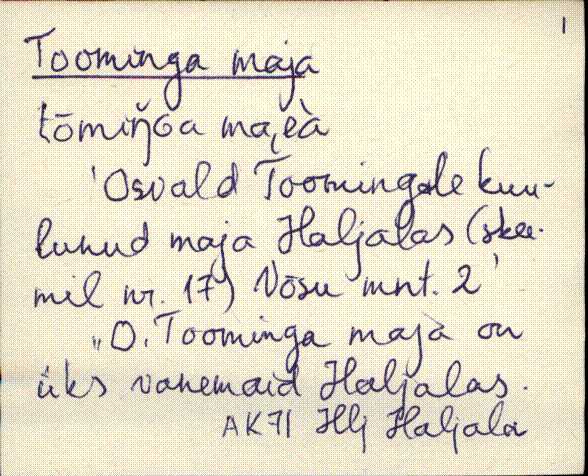 1
Toominga maja
'Osvald Toomingale kuu-
lunud maja Haljalas (skee-
mil nr. 17) Võsu mnt. 2'
„O. Toominga maja on
üks vanemaid Haljalas.
AK71 Hlj Haljala